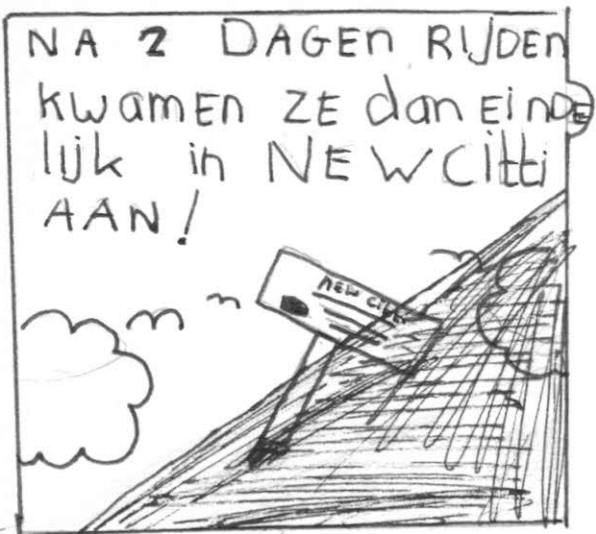 NA 2 DAGEN RIJDEN
kwamEN ZE dan EiNDE
lijk in NEWCitti
AAN!
NEW CITTI